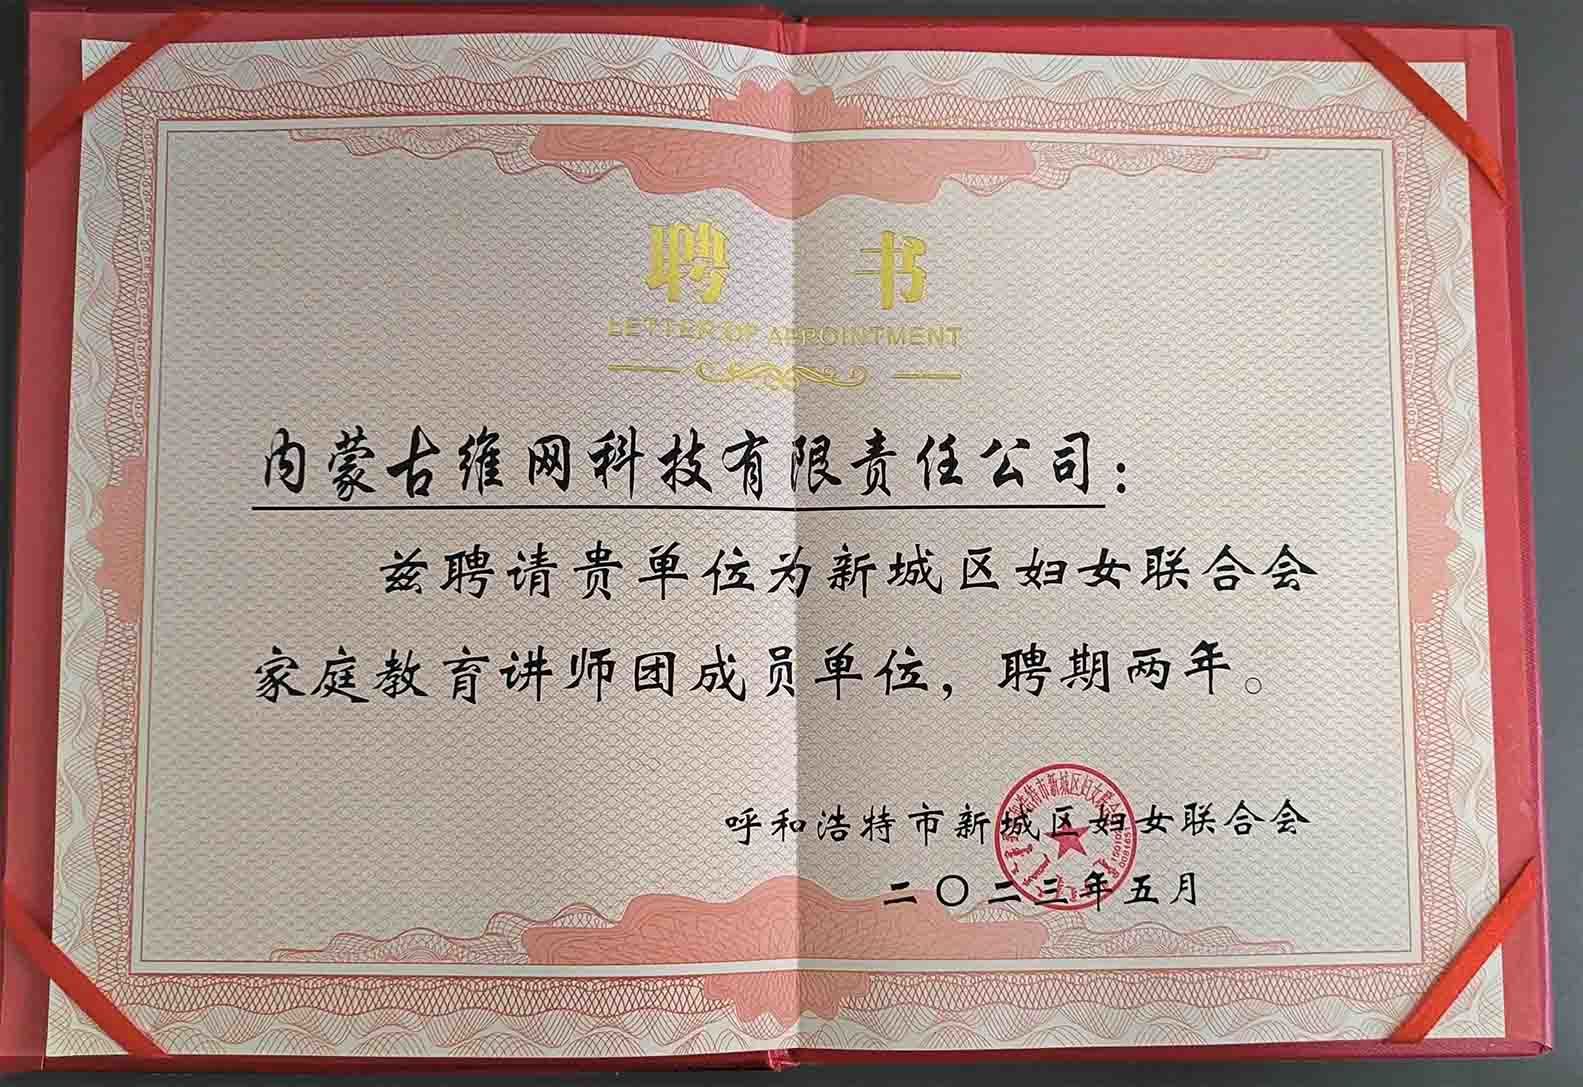 聘书
LETTER OF APPOINTMENT
内蒙古维网科技有限责任公司：
兹聘请贵单位为新城区妇女联合会
家庭教育讲师团成员单位，聘期两年。
呼和浩特市新城区妇女联合会
二〇二三年五月